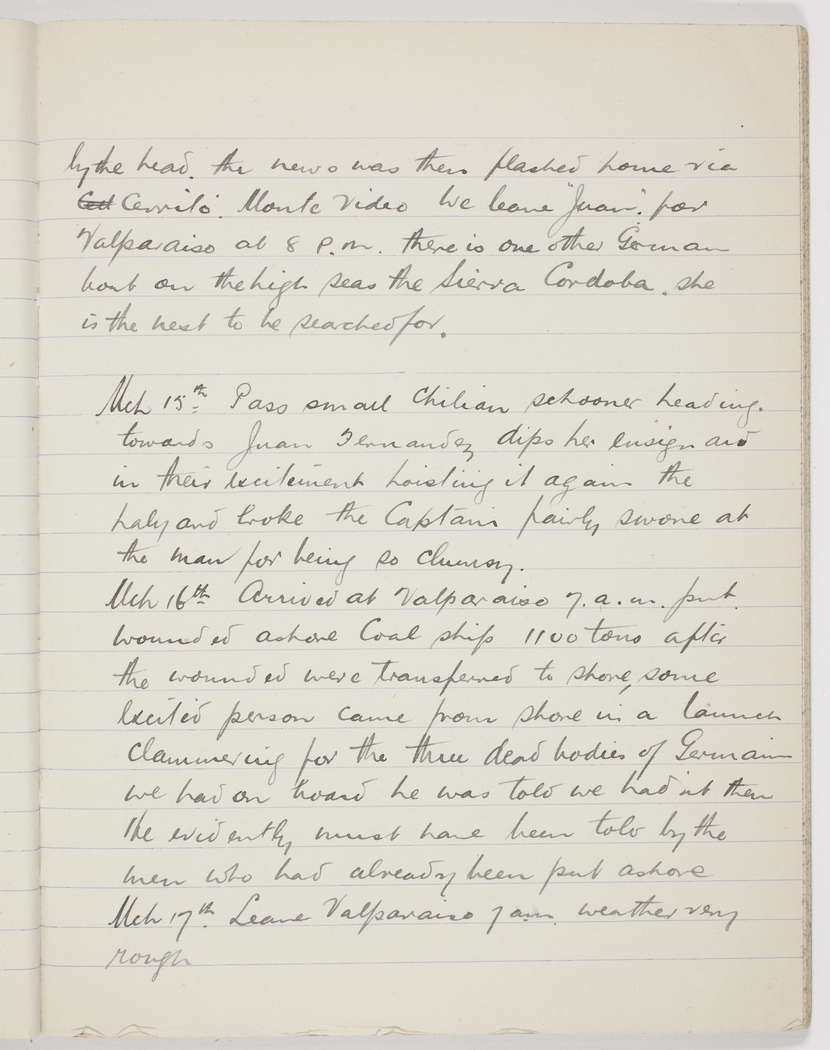 by the head. the news was then flashed home via
Cerrito. Monte Video We leave "Juan". for
Valparaiso at 8 P.m. there is one other German
boat on the high seas the Sierra Cordoba. she
is the next to be searched for.
Mch 15th Pass small Chilian schooner heading.
towards Juan Fernandez dips her ensign and
in their excitement hoisting it again the
halyard broke the Captain fairly swore at
the man for being so clumsy.
Mch 16th Arrived at Valparaiso 7.a.m. put
wounded ashore Coal ship 1100 tons after
the wounded were transferred to shore, some
excited person came from shore in a launch
clammering for the three dead bodies of Germans
we had on board he was told we hadnt them
He evidently must have been told by the
men who had already been put ashore
Mch 17th. Leave Valparaiso 7 am. weather very
rough